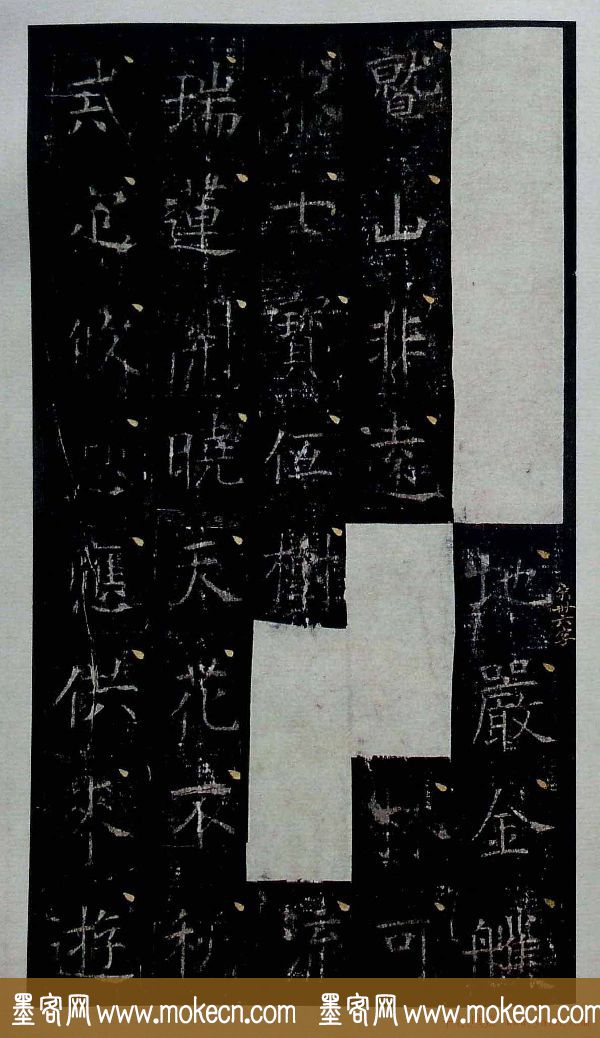 地嚴金
卌六字
鷲山非遠 林可
七寶伍樹
瑞蓮開曉天花不秋
修應供來遊
墨客网 www.mokecn.com 墨客网 www.mokecn.com